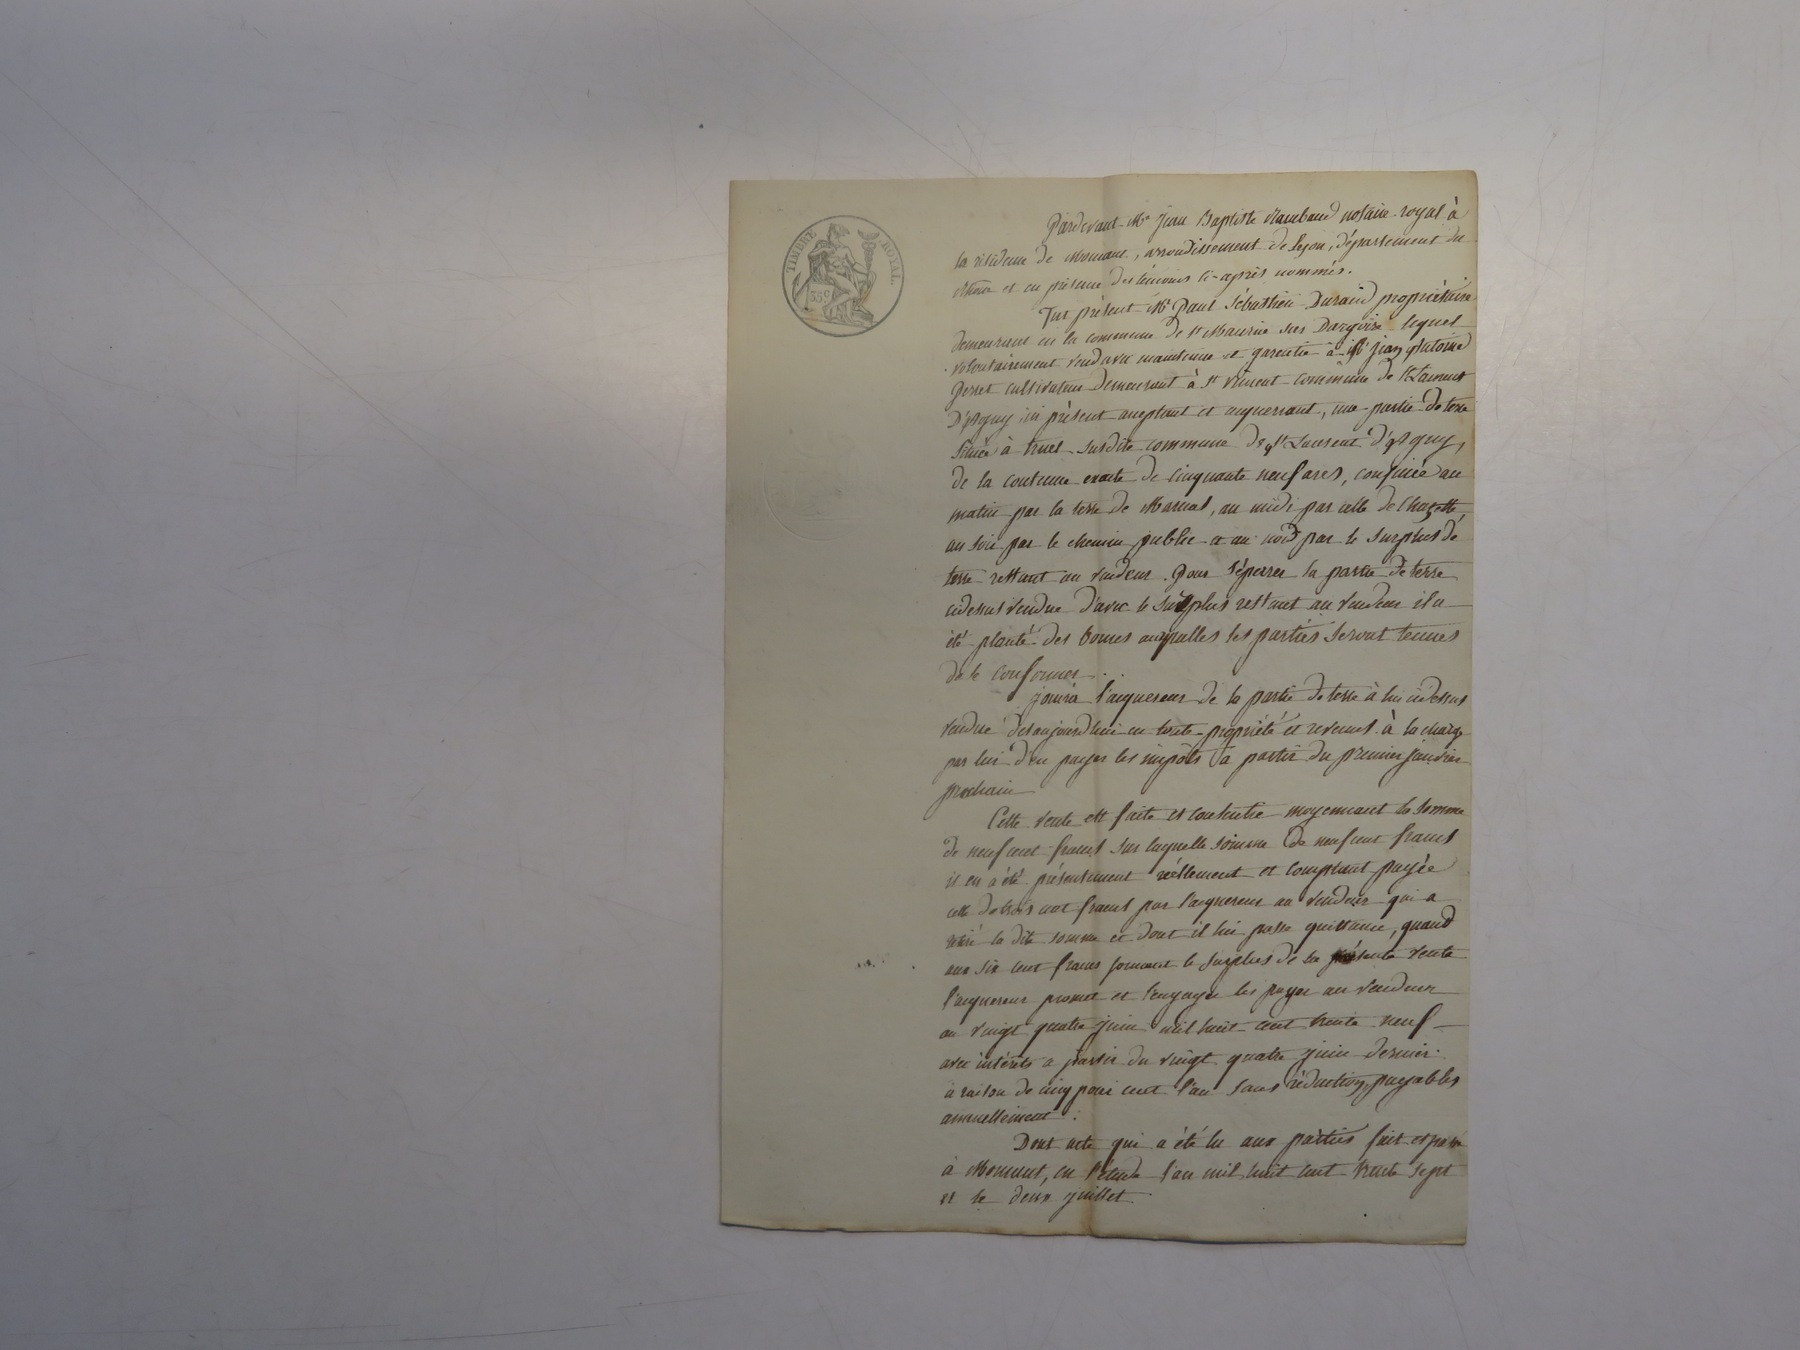 TIMBRE ROYAL
35c
Pardevant Me Jean Baptiste notaire royal à
la résidence de Mornant, arrondissement de Lyon, département du
Rhône et en présence des témoins ci-après nommés.
Fut présent Mr Paul Sébastien Durand propriétaire
demeurant en la commune de St Maurice sur Dargoire lequel
volontairement vend avec maintenue et garentie à Mr Jean Antoine
cultivateur demeurant à St Vincent commune de St Laurent
D'Agny ici présent acceptant et acquerrant, une partie de terre
située à susdite commune de St Laurent d'Agny,
de la contenue exacte de cinquante neuf ares, confinée au
matin par la terre de, au midi par celle de Chazotte,
au soir par le chemin public et au nord par le surplus de
terre restant au vendeur. Pour séparer la partie de terre
cidessus vendue d'avec le surplus restant au vendeur il a
été planté des bornes auxqualles les parties seront tenues
de se conformer.
Jouira l'acquereur de la partie de terre à lui cidessus
vendue des aujourdhui en toute propriété et revenus à la charge
par lui d'en payer les impôts à partir du premier janvier
prochain
Cette vente est faite et consentie moyennant la somme
de neuf cent francs sur laquelle somme de neuf cent francs
il en a été présentement réellement et comptant payée
celle de trois cent francs par l'acquereur au vendeur qui a
retiré la dite somme et dont il lui passe quittance, quand
aux six cent francs formant le surplus de la présente vente
l'acquereur promet et s'engage les payer au vendeur
au vingt quatre juin mil huit cent trente neuf
avec intérêts a partir du vingt quatre juin dernier
à raison de cinq pour cent l'an sans réduction, payables
annuellement.
Dont acte qui a été lu aux parties fait et passé
à Mornant, en l'étude l'an mil huit cent trente sept
et le deux juillet.